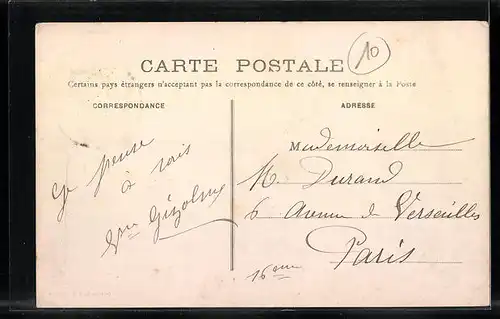 10
CARTE POSTALE
Certains pays étrangers n'acceptant pas la correspondance de ce côté, se renseigner à la Poste
CORRESPONDANCE
Je pense
à vous
ADRESSE
Mademoiselle
M. Durand
6 Avenue de Versailles
Paris
16eme